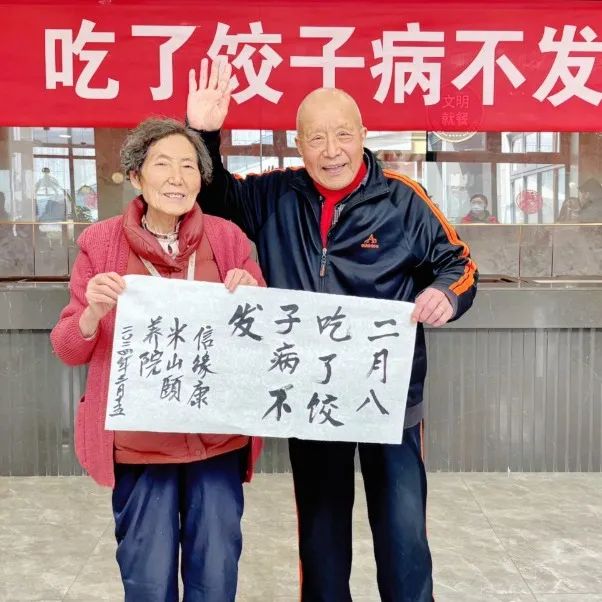 吃了饺子病不发
文明
就餐
二月八
吃了饺
子病不
发
信缘康
米山颐
养院
二〇二四年二月